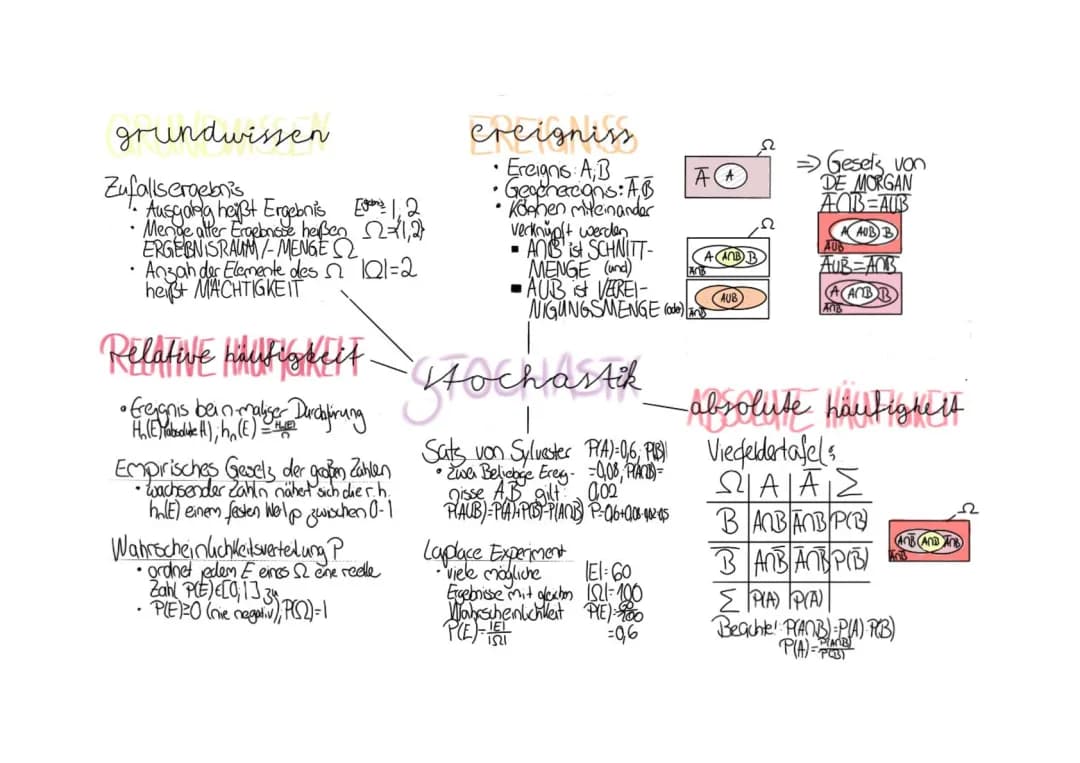 grundwissen
Zufallsergebnis
• Ausgang heißt Ergebnis Ergebnis=1,2
• Menge aller Ergebnisse heißen Ω={1,2}
ERGEBNISRAUM/-MENGE Ω
• Anzahl der Elemente des Ω |Ω|=2
heißt MÄCHTIGKEIT
ereigniss
• Ereignis: A,B
• Gegenereignis: A̅,B̅
• können miteinander
verknüpft werden
▪ A∩B ist SCHNITT-
MENGE (und)
▪ A∪B ist VEREI-
NIGUNGSMENGE (oder)
Ω
A̅ A
Ω
A A∩B B
A∪B
⇒ Gesetz von
DE MORGAN
A̅∩B̅=A̅∪B̅
A A∪B B
A∪B
A̅∪B̅=A̅∩B̅
A A∩B B
stochastik
relative häufigkeit
• Ereignis bei n-maliger Durchführung
Hₙ(E) (absolute H), hₙ(E)=Hₙ(E)/n
Empirisches Gesetz der großen Zahlen
• wachsender Zahl n nähert sich die r.h.
hₙ(E) einem festen Wet p zwischen 0-1
Wahrscheinlichkeitsverteilung P
• ordnet jedem E eines Ω eine reelle
Zahl P(E)∈[0,1] zu
• P(E)≥0 (nie negativ), P(Ω)=1
Satz von Sylvester P(A)=0,6, P(B)
• Zwei Beliebige Ereig- =0,08, P(A∩B)=
nisse A,B gilt: 0,02
P(A∪B)=P(A)+P(B)-P(A∩B)
Laplace Experiment
• viele mögliche |E|=60
Ergebnisse mit gleichen |Ω|=100
Wahrscheinlichkeit P(E)=60/100
P(E)=|E|/|Ω| =0,6
absolute häufigkeit
Vierfeldertafel:
Ω A A̅ Σ
B A∩B A̅∩B P(B)
B̅ A∩B̅ A̅∩B̅ P(B̅)
Σ P(A) P(A̅)
Ω
A∩B̅ A∩B A̅∩B
A̅∩B̅
Beachte! P(A∩B)=P(A)·P(B)
P(A)=P(A∩B)/P(B)